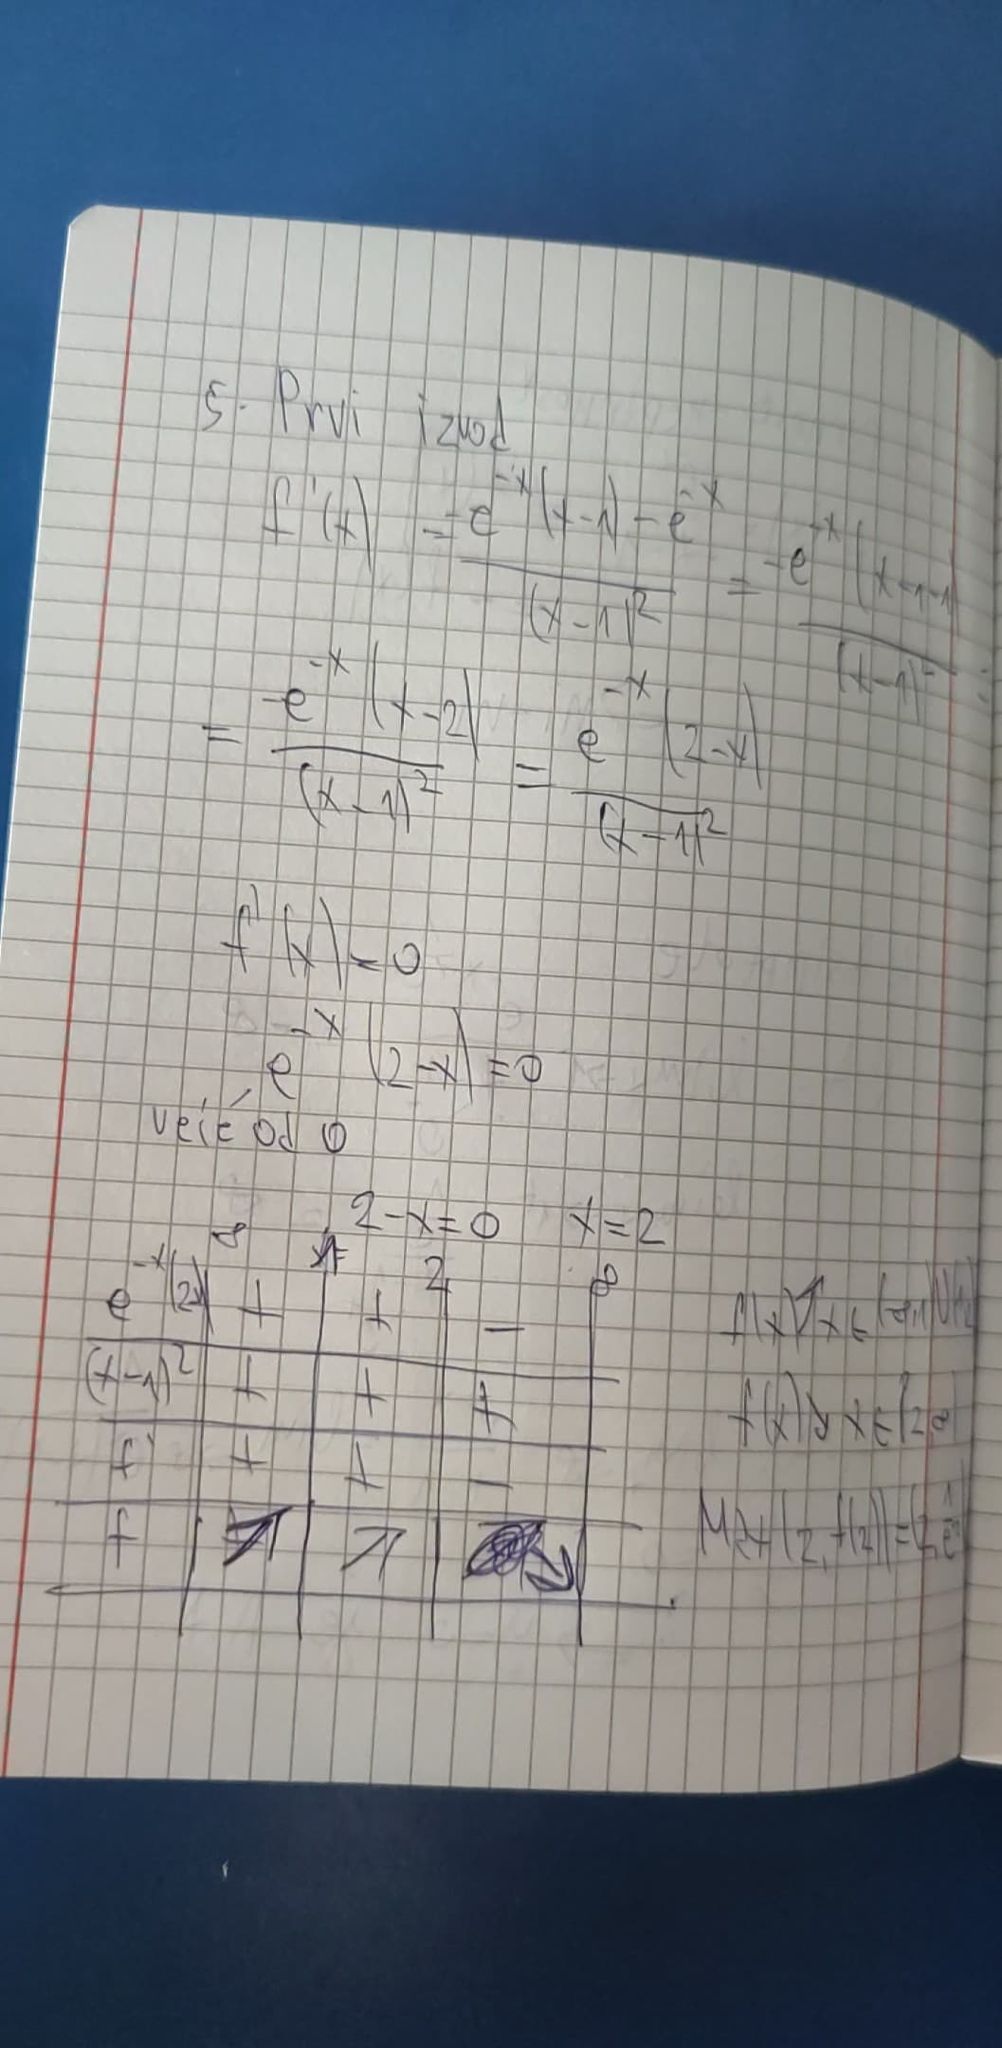 5. Prvi izvod
f'(x) = -e^-x (x-1) - e^-x / (x-1)^2 = -e^-x (x-1-1) / (x-1)^2 =
= -e^-x (x-2) / (x-1)^2 = e^-x (2-x) / (x-1)^2
f'(x) = 0
e^-x (2-x) = 0
veće od 0
2-x=0 x=2
-∞ 1 2 ∞
e^-x (2-x) + + -
(x-1)^2 + + +
f' + + -
f ↗ ↗ ↘
f(x) ↗ x ∈ (-∞,1) ∪ (1,2)
f(x) ↘ x ∈ (2,∞)
(2, f(2)) = (2, 1/e^2)